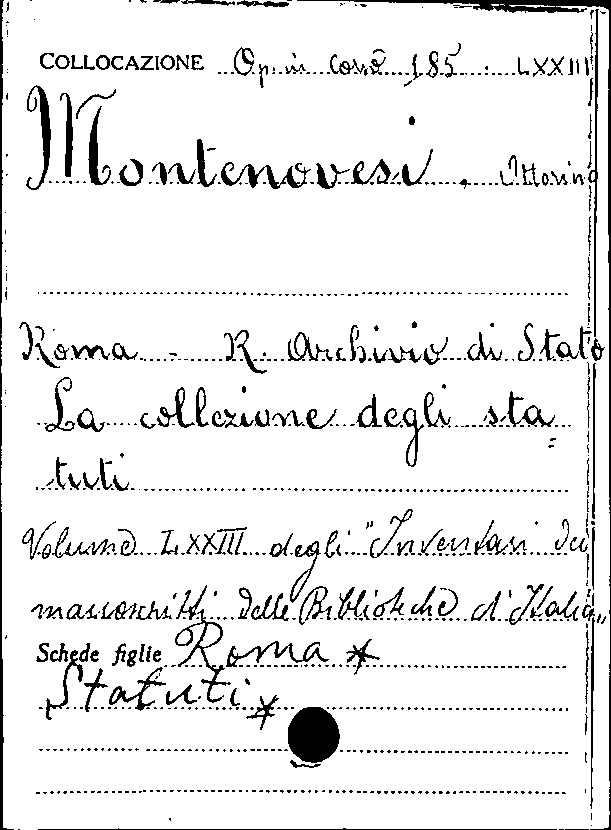 COLLOCAZIONE Op. in Cons 185. LXXIII
Montenovesi. Ottorino
Roma - R. Archivio di Stato
La collezione degli sta=
tuti
Volume LXXIII degli "Inventari dei
manoscritti delle Biblioteche d'Italia"
Schede figlie Roma *
Statuti *